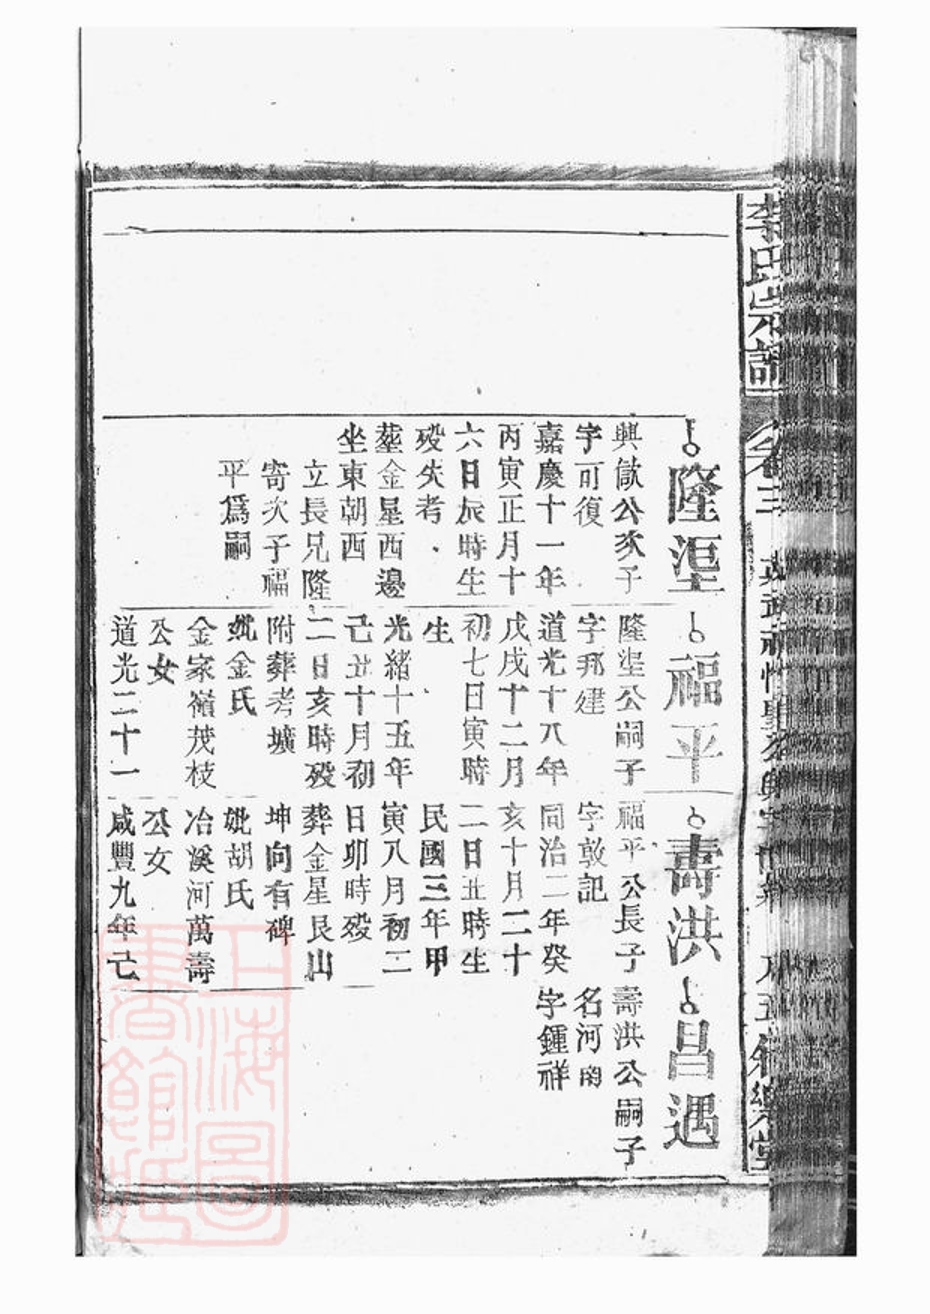 李氏宗譜
卷三
隆浧
興僘公次子
字可復
嘉慶十一年
丙寅正月十
六日辰時生
歿失考
塟金星西邊
坐東朝西
立長兄隆
寄次子福
平爲嗣
福平
隆浧公嗣子
字邦建
道光十八年
戊戌十二月
初七日寅時
生
光緒十五年
己丑十月初
二日亥時歿
附葬考壙
妣金氏
金家嶺茂枝
公女
道光二十一
壽洪
福平公長子
字敦記
同治二年癸
亥十月二十
二日丑時生
民國三年甲
寅八月初二
日卯時歿
葬金星艮山
坤向有碑
妣胡氏
冶溪河萬壽
公女
咸豐九年己
昌遇
壽洪公嗣子
名河南
字鍾祥
上海圖
書館藏